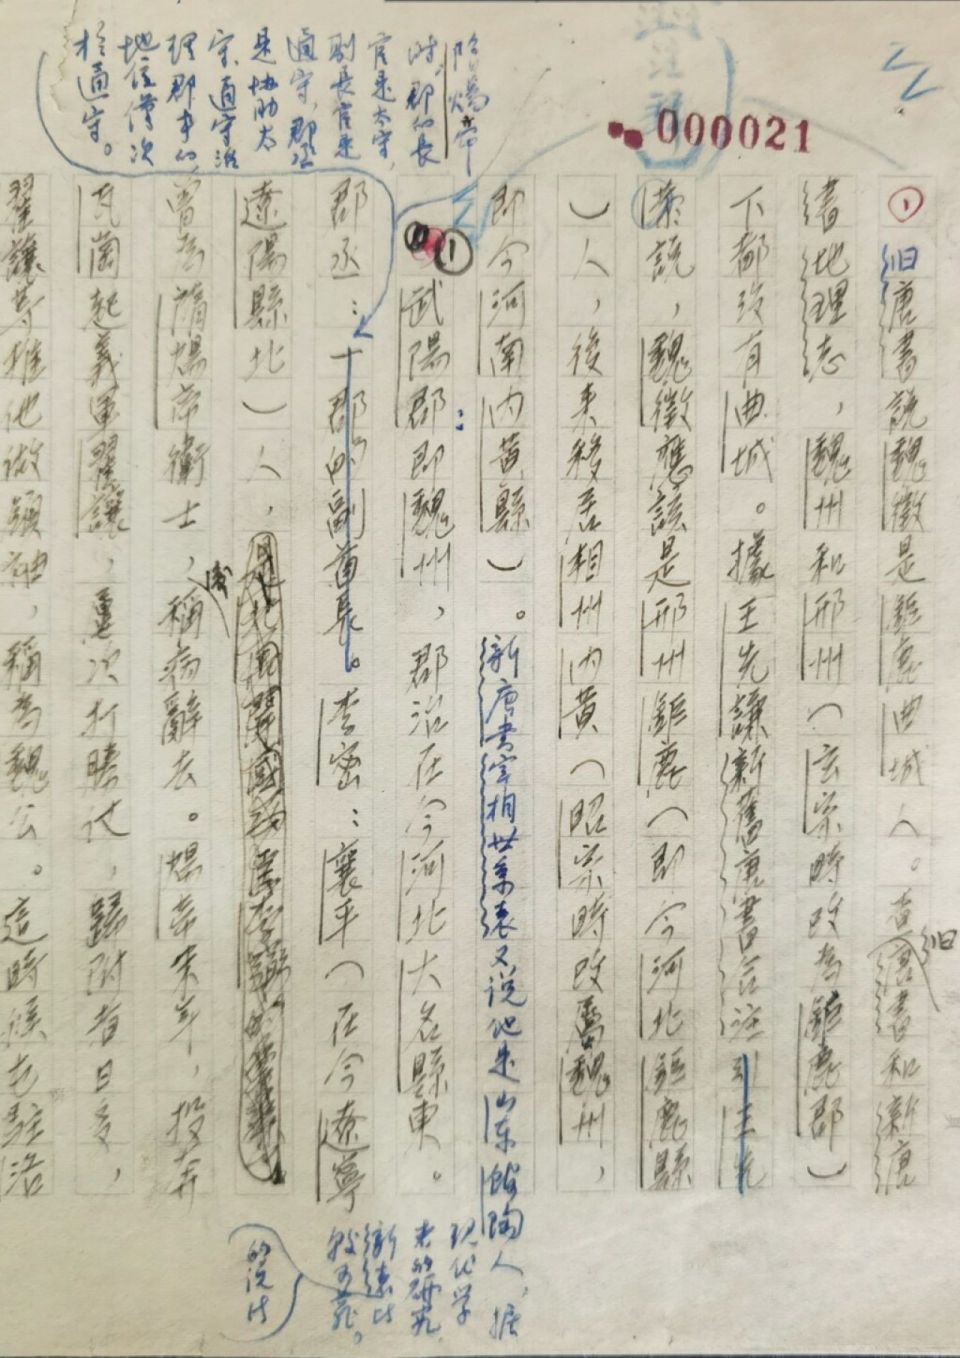 000021
① 旧唐書説魏徵是鉅鹿曲城人。查舊唐書和新唐
書地理志，魏州和邢州（玄宗時改為鉅鹿郡）
下都没有曲城。據王先謙新舊唐書合注引王先
説，魏徵應該是邢州鉅鹿（即今河北鉅鹿縣
）人，後來移居相州内黄（昭宗時改屬魏州，
即今河南内黄縣）。新唐書宰相世系表又说他是山东馆陶人，据
现代学
者的研究
新表比
較可靠。
的说法
① 武陽郡：即魏州，郡治在今河北大名縣東。
郡丞：十郡的副首長。李密：襄平（在今遼寧
隋煬帝
时，郡的長
官是太守，
副長官是
通守，郡丞
是协助太
守、通守治
理郡事的，
地位僅次
於通守。
遼陽縣北）人，
曾為隋煬帝衛士，稱病辭去。煬帝末年，投奔
瓦崗起義軍翟讓，屢次打勝仗，歸附者日多，
翟讓等推他做領袖，稱為魏公。這時候屯駐洛